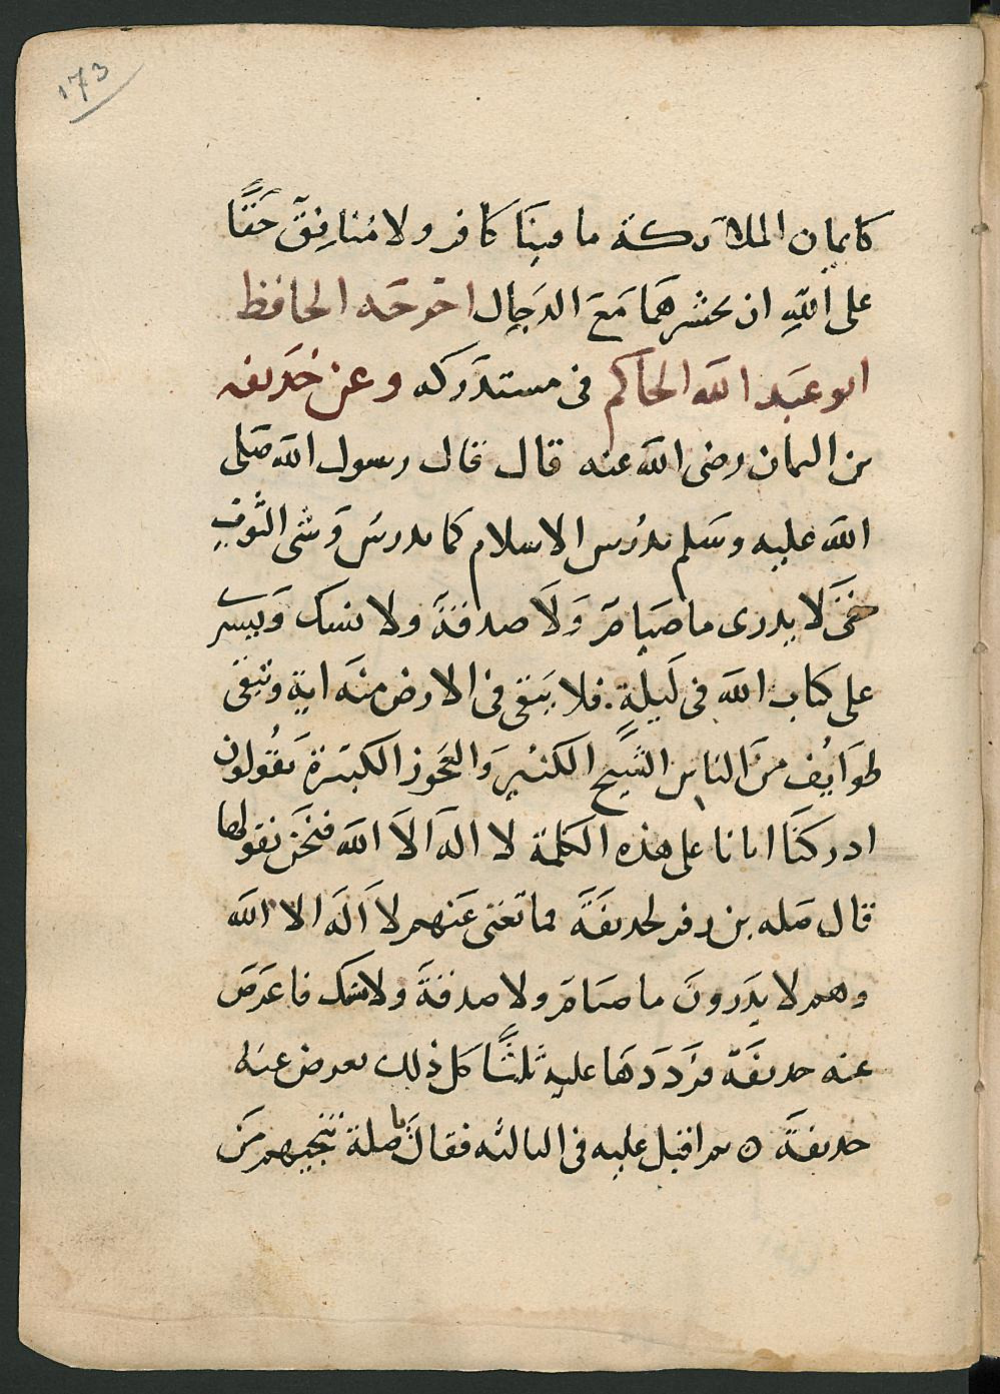 173
كايمان الملائكة ما فينَا كافر ولا مُنافِقٌ حَقًّا
على اللّهِ ان يحشرهمَا مَعَ الدجال اخرجَه الحافظ
ابو عبَد اللّه الحاكم فى مستدَركه وعن حُذَيفه
بن اليمان رضى اللّه عنه قال قال رسول اللّه صَلى
اللّه عليه وسَلم يدرُس الاسلام كما يدرسُ وَشى الثوبِ
حَتىَ لا يدرى ما صيَامٌ وَلاَ صدقةٌ ولا نسك وَيسرى
على كتاب اللّه فى لَيلةٍ فلا يَبقى فى الارض منهَ اية وتبقى
طوَايُف منَ الناس الشيَخ الكبيُر وَالعجوز الكبَيرة يَقُولون
ادركنَا ابانا على هذه الكلمة لا الهَ الاَ اللّه فنحَن نقولها
قال صَله بن زفر لحذيفَةَ فما تغنى عَنهم لاَ الَه الا اللّه
وهم لا يدَرونَ ما صيَامٌ ولا صدقةَ ولا نسَك فاعَرضَ
عنه حذيفَةُ فرَدَدَهَا عليهِ ثَلثًا كل ذلك يعرض عنهُ
حذيفةَ ه ثم اقبل عليه فى الثالثه فقالَ يا صلة تنجيهم مَن